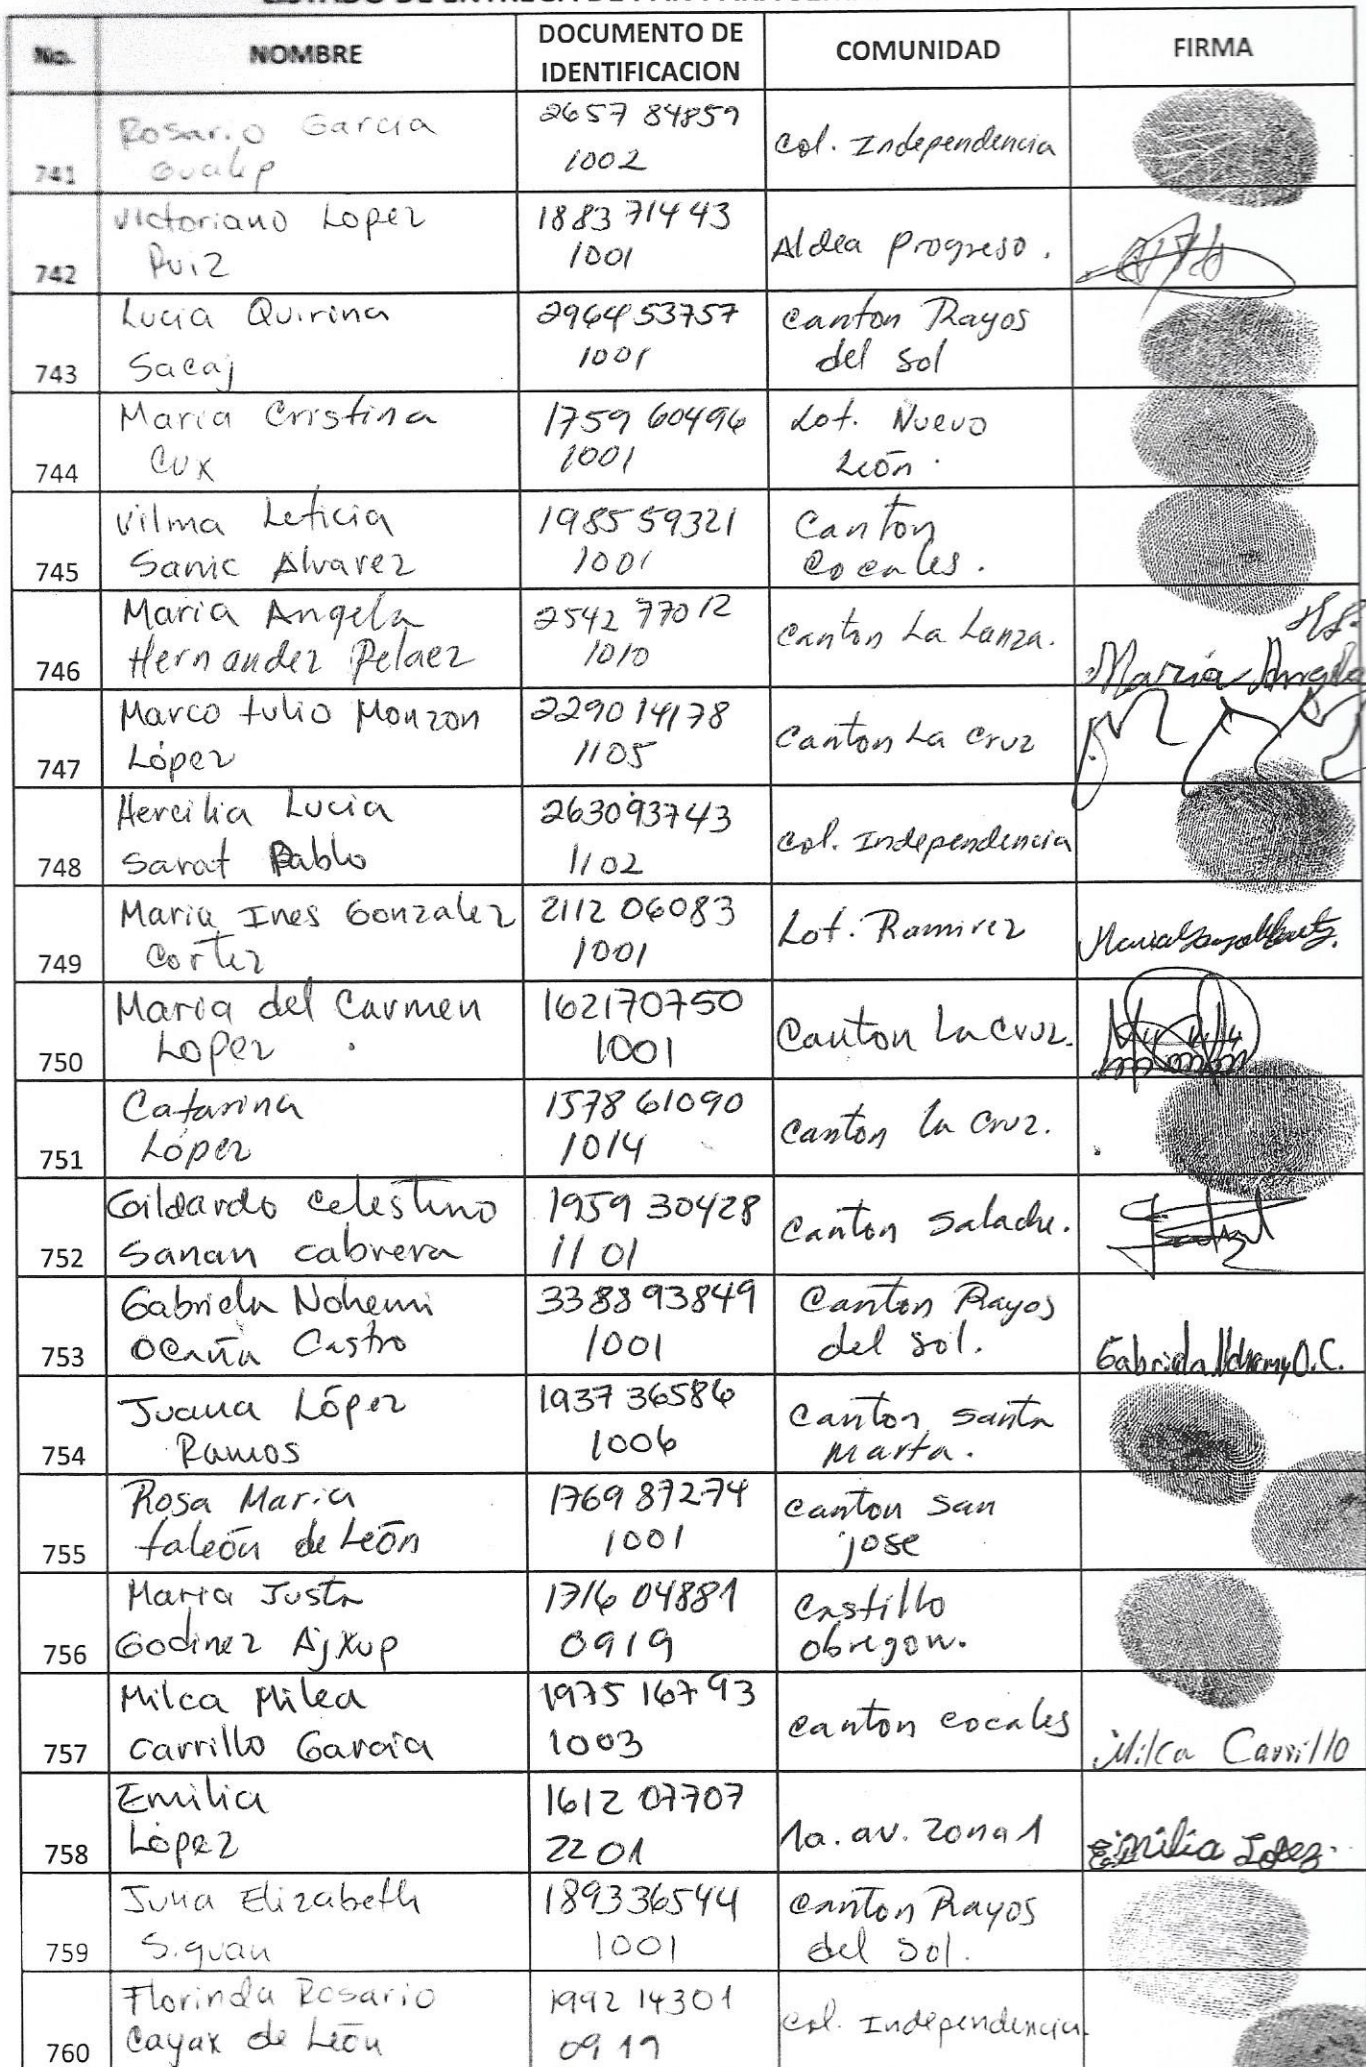 No. NOMBRE DOCUMENTO DE IDENTIFICACION COMUNIDAD FIRMA
741 Rosario Garcia 2657 84859 1002 Col. Independencia
742 Victoriano Lopez Ruiz 1883 71443 1001 Aldea Progreso.
743 Lucia Quirina Sacaj 2964 53757 1001 Canton Rayos del Sol
744 Maria Cristina Cux 1759 60496 1001 Lot. Nuevo León.
745 Vilma Leticia Sanic Alvarez 1985 59321 1001 Canton Cocales.
746 Maria Angela Hernandez Pelaez 2542 77012 1010 Canton La Lanza. María Angela
747 Marco tulio Monzon López 2290 14178 1105 Canton La Cruz
748 Hercilia Lucia Sarat Pablo 263093743 1102 Col. Independencia
749 Maria Ines Gonzalez Cortez 2112 06083 1001 Lot. Ramirez
750 Maria del Carmen Lopez 162170750 1001 Canton La Cruz.
751 Catarina López 1578 61090 1014 Canton La Cruz.
752 Gildardo Celestino Sanan Cabrera 1959 30428 1101 Canton Salache.
753 Gabriela Nohemi Ocaña Castro 3388 93849 1001 Canton Rayos del Sol. Gabriela Nohemy O.C.
754 Juana López Ramos 1937 36586 1006 Canton Santa Marta.
755 Rosa Maria taleón de León 1769 87274 1001 Canton San jose
756 Maria Justa Godinez Ajxup 1716 04881 0919 Castillo Obregon.
757 Milca Milca Carrillo Garcia 1975 16793 1003 Canton Cocales Milca Carrillo
758 Emilia López 1612 07707 2201 1a. av. Zona 1 Emilia Lopez.
759 Elizabeth Siguan 189336544 1001 Canton Rayos del Sol.
760 Florinda Rosario Cayax de León 1992 14301 0919 Col. Independencia